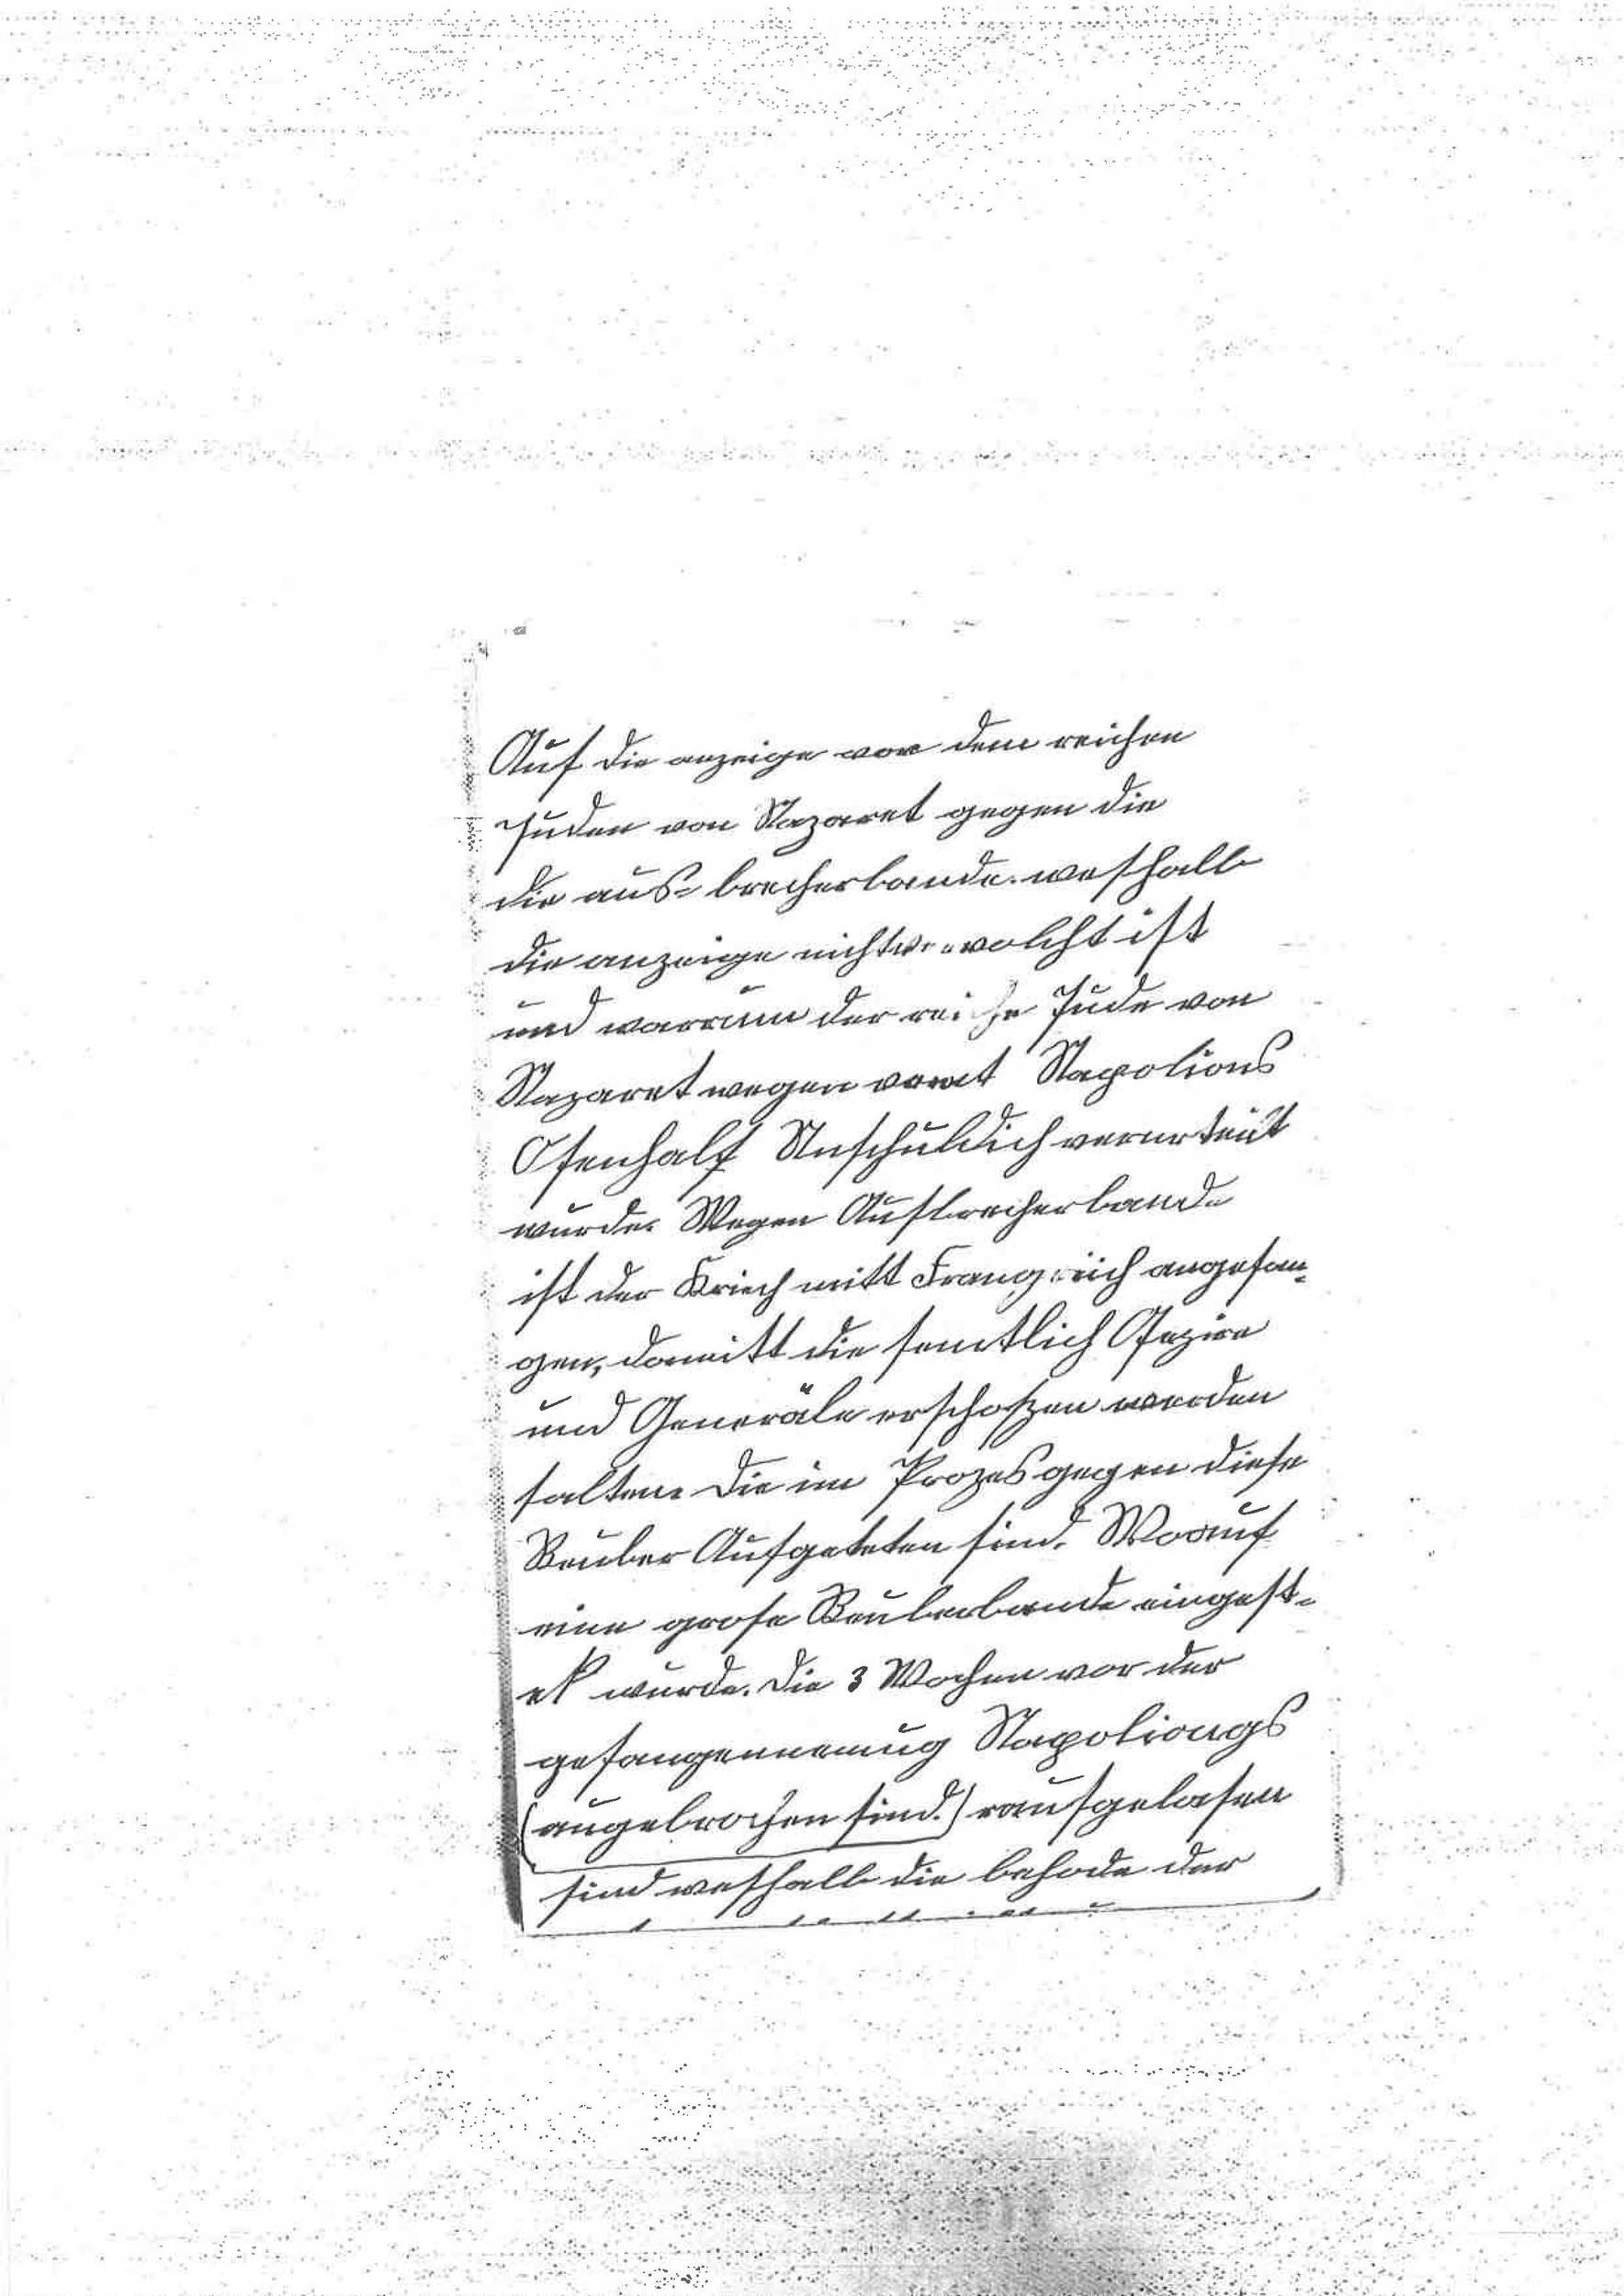 Auf die anzeige vor dem reichen
Juden von Nazaret gegen die
die aus= brecherbande. weshalb
die anzeige nicht ist
und warrum der reiche Jude von
Nazaret wegen Napolions
Unschuldich verurteilt
wurde. Wegen Ausbrecherbande
ist der Kriech mitt Frangreich angefan-
gen, damitt die semtlich Ofezire
und Generäle erschoßen werden
salten. Die im Prozes gegen diese
Reuber Aufgeteten sind. Woauf
eine grose Reuberbande eingest-
ek wurde. Die 3 Wochen vor der
gefangennemug Napoliongs
(augebrochen sind.) rausgelasen
sind weshalb die behode der